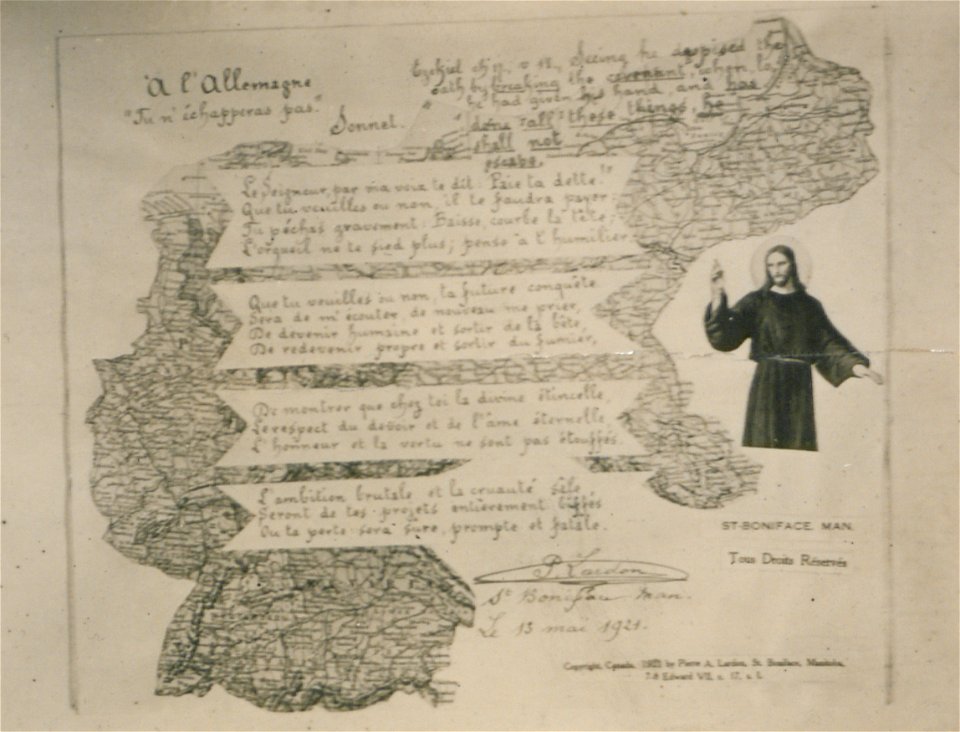 À l'Allemagne
"Tu n'échapperas pas."
Sonnet.
Ezekiel ch 17. v 18, Seeing he despised the
oath by breaking the covenant, when lo
he had given his hand, and has
done all these things, he
shall not
escape.
Le Seigneur, par ma voix te dit: Paie ta dette!
Que tu veuilles ou non, il te faudra payer;
Tu péchas gravement: Baisse, courbe la tête;
L'orgueil ne te sied plus; pense à t'humilier
Que tu veuilles ou non, ta future conquête
Sera de m'écouter, de nouveau me prier,
De devenir humaine et sortir de la bête,
De redevenir propre et sortir du fumier,
De montrer que chez toi la divine étincelle,
Le respect du devoir et de l'âme éternelle,
L'honneur et la vertu ne sont pas étouffés.
L'ambition brutale et la cruauté
Seront de tes projets entièrement biffés
Ou ta perte sera sûre, prompte et fatale.
P. Lardon
St Boniface Man.
Le 13 mai 1921.
ST-BONIFACE, MAN.
Tous Droits Réservés
Copyright, Canada, 1921 by Pierre A. Lardon, St. Boniface, Manitoba,
7-8 Edward VII, c. 17, s. I.